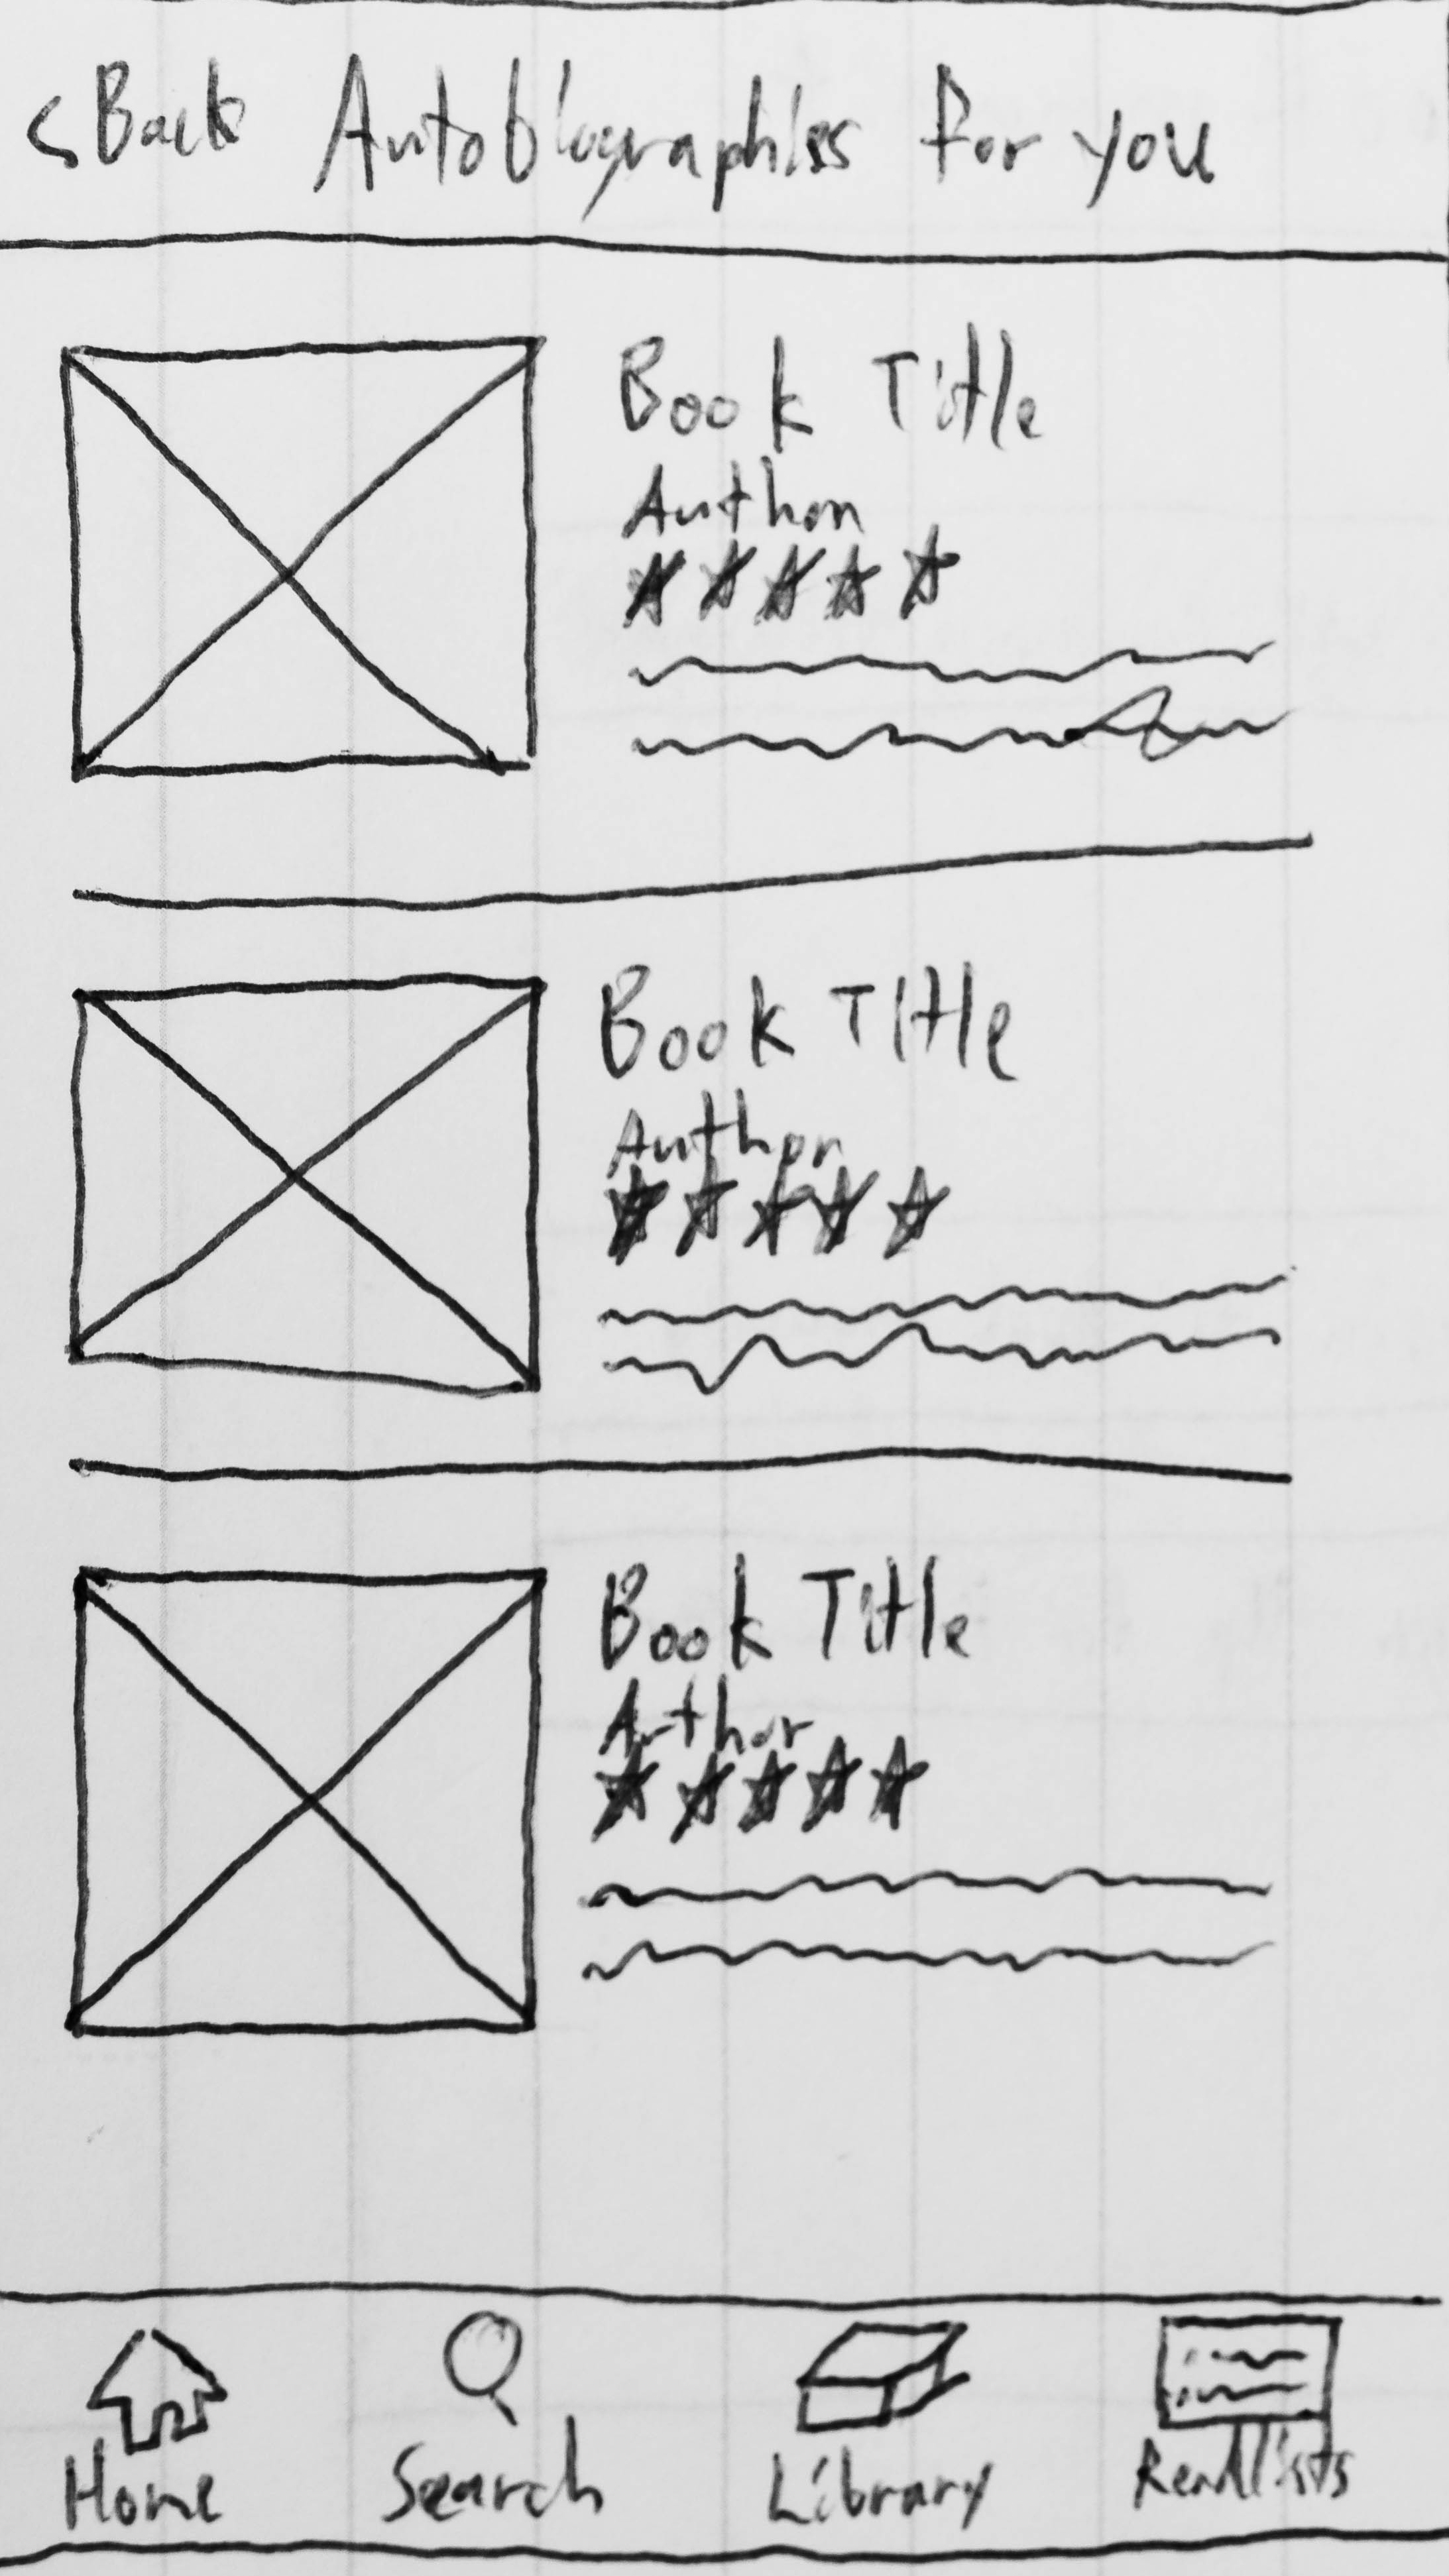 < Back Autobiographies for you
Book Title
Author
Book Title
Author
Book Title
Author
Home Search Library Readlists